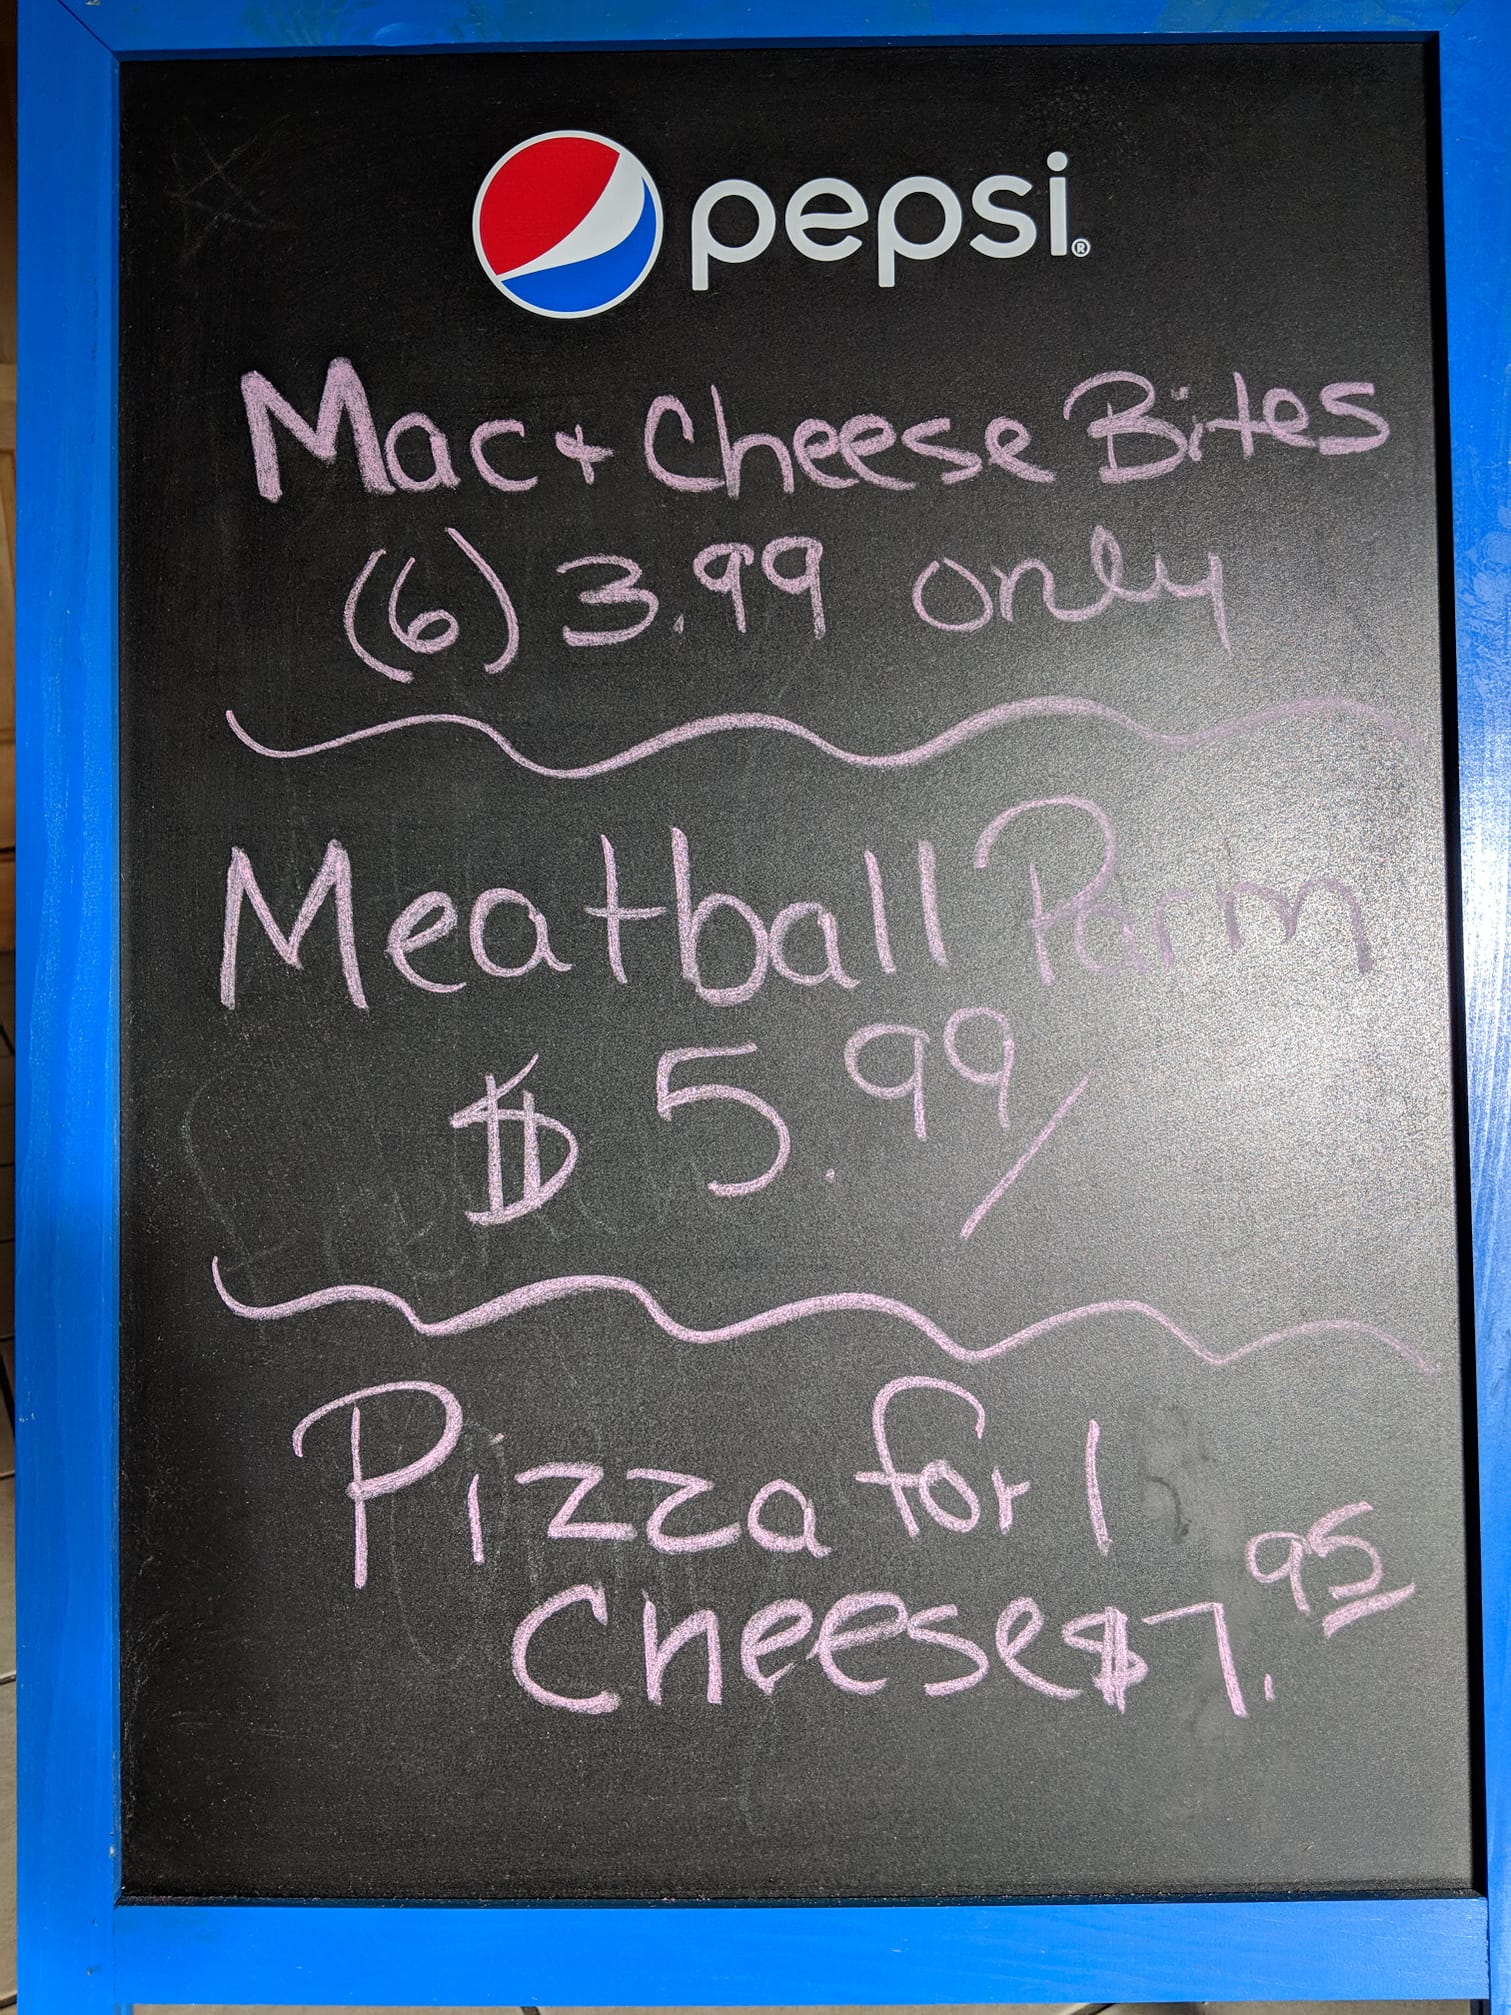 pepsi®
Mac + Cheese Bites
(6) 3.99 only
Meatball Parm
$ 5.99/
Pizza for 1
Cheese $7.95